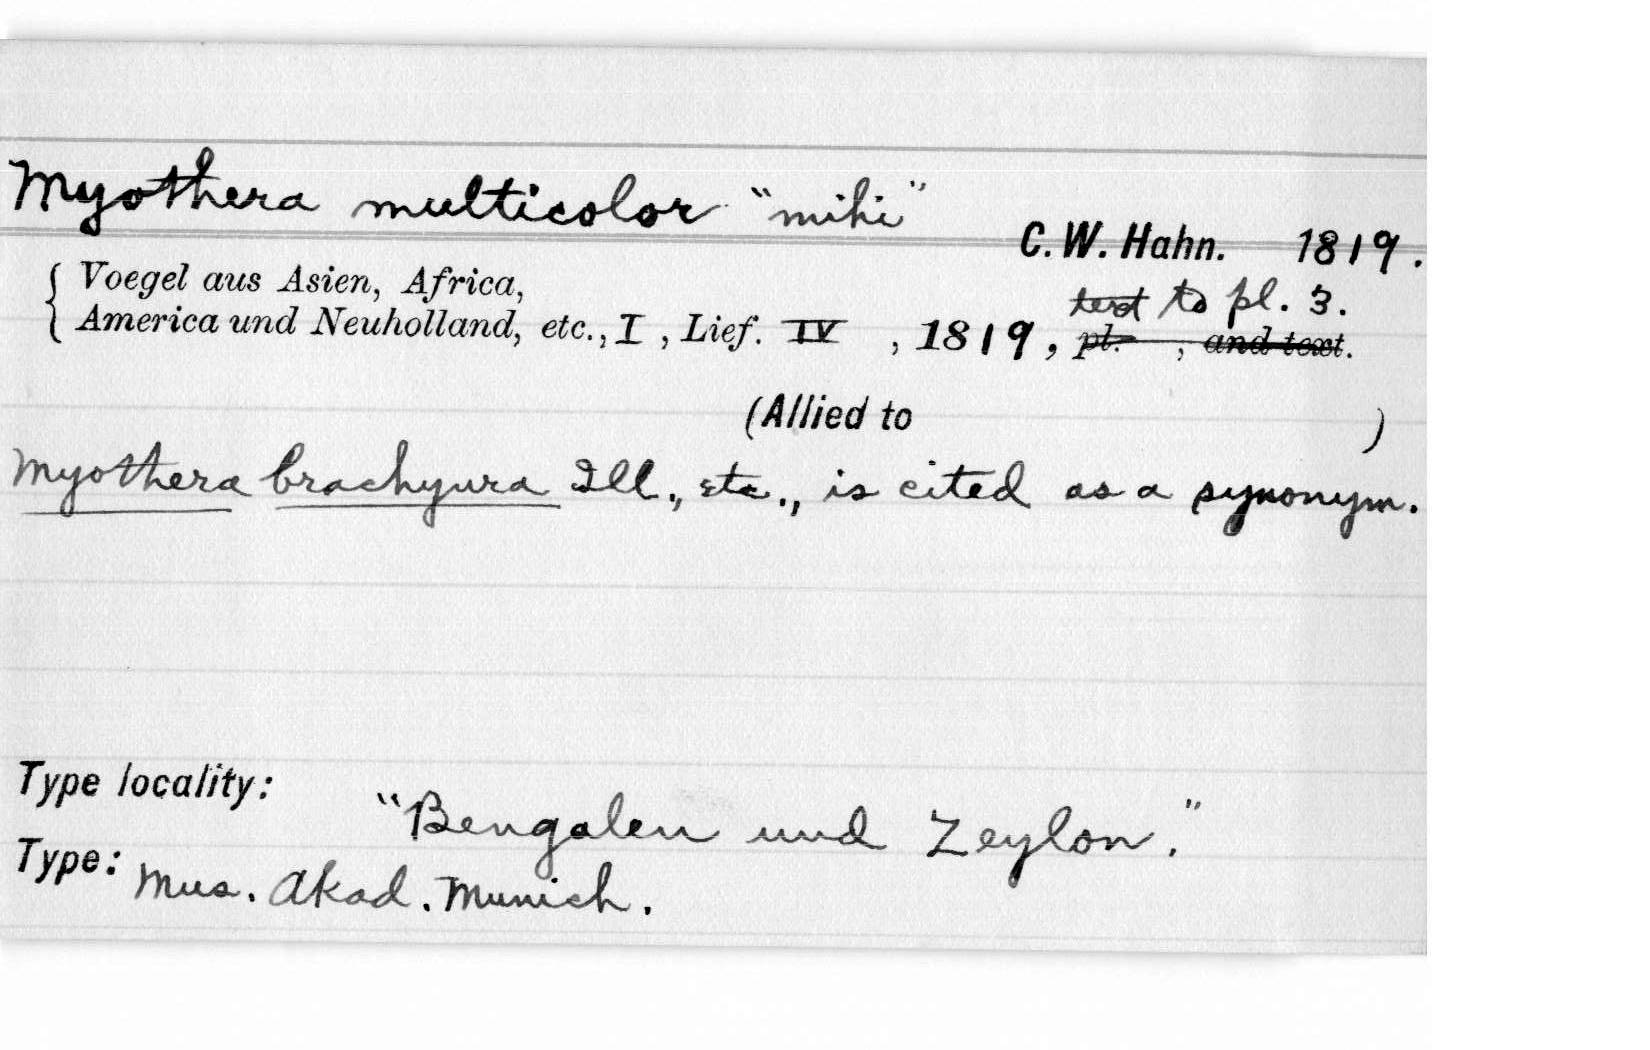 Myothera multicolor "mihi"
C. W. Hahn. 1819.
Voegel aus Asien, Africa,
America und Neuholland, etc., I, Lief. IV, 1819, text to pl. 3.
pl. , and text.
(Allied to )
Myothera brachyura Ill., etc., is cited as a synonym.
Type locality: "Bengalen und Zeylon."
Type: Mus. Akad. Munich.